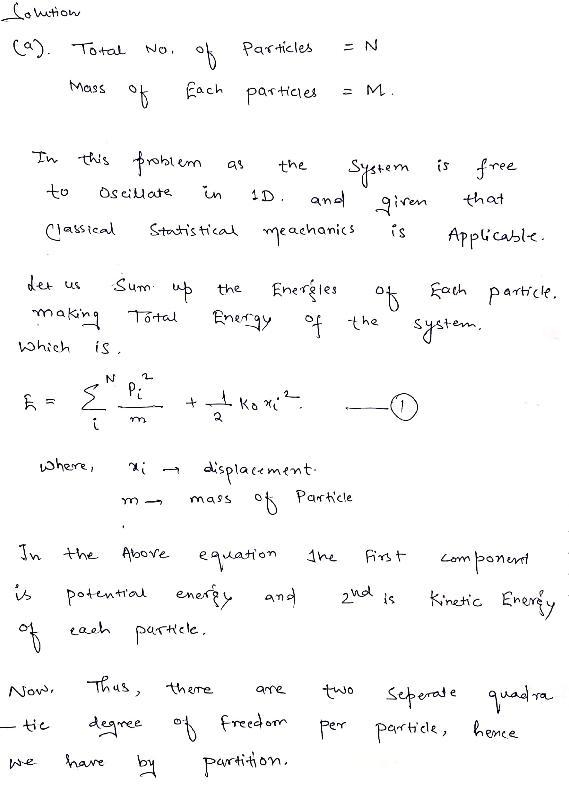 Solution
(a). Total No. of Particles = N
Mass of Each particles = M.
In this problem as the System is free
to Oscillate in 1D. and given that
Classical Statistical meachanics is Applicable.
Let us Sum up the Energies of Each particle.
making Total Energy of the system.
Which is.
E = \sum_{i}^{N} \frac{P_i^2}{m} + \frac{1}{2} K_0 x_i^2. —— ①
Where, x_i → displacement.
m → mass of Particle
In the Above equation the First component
is potential energy and 2nd is Kinetic Energy
of each particle.
Now. Thus, there are two Seperate quadra
- tic degree of freedom per particle, hence
we have by partition.